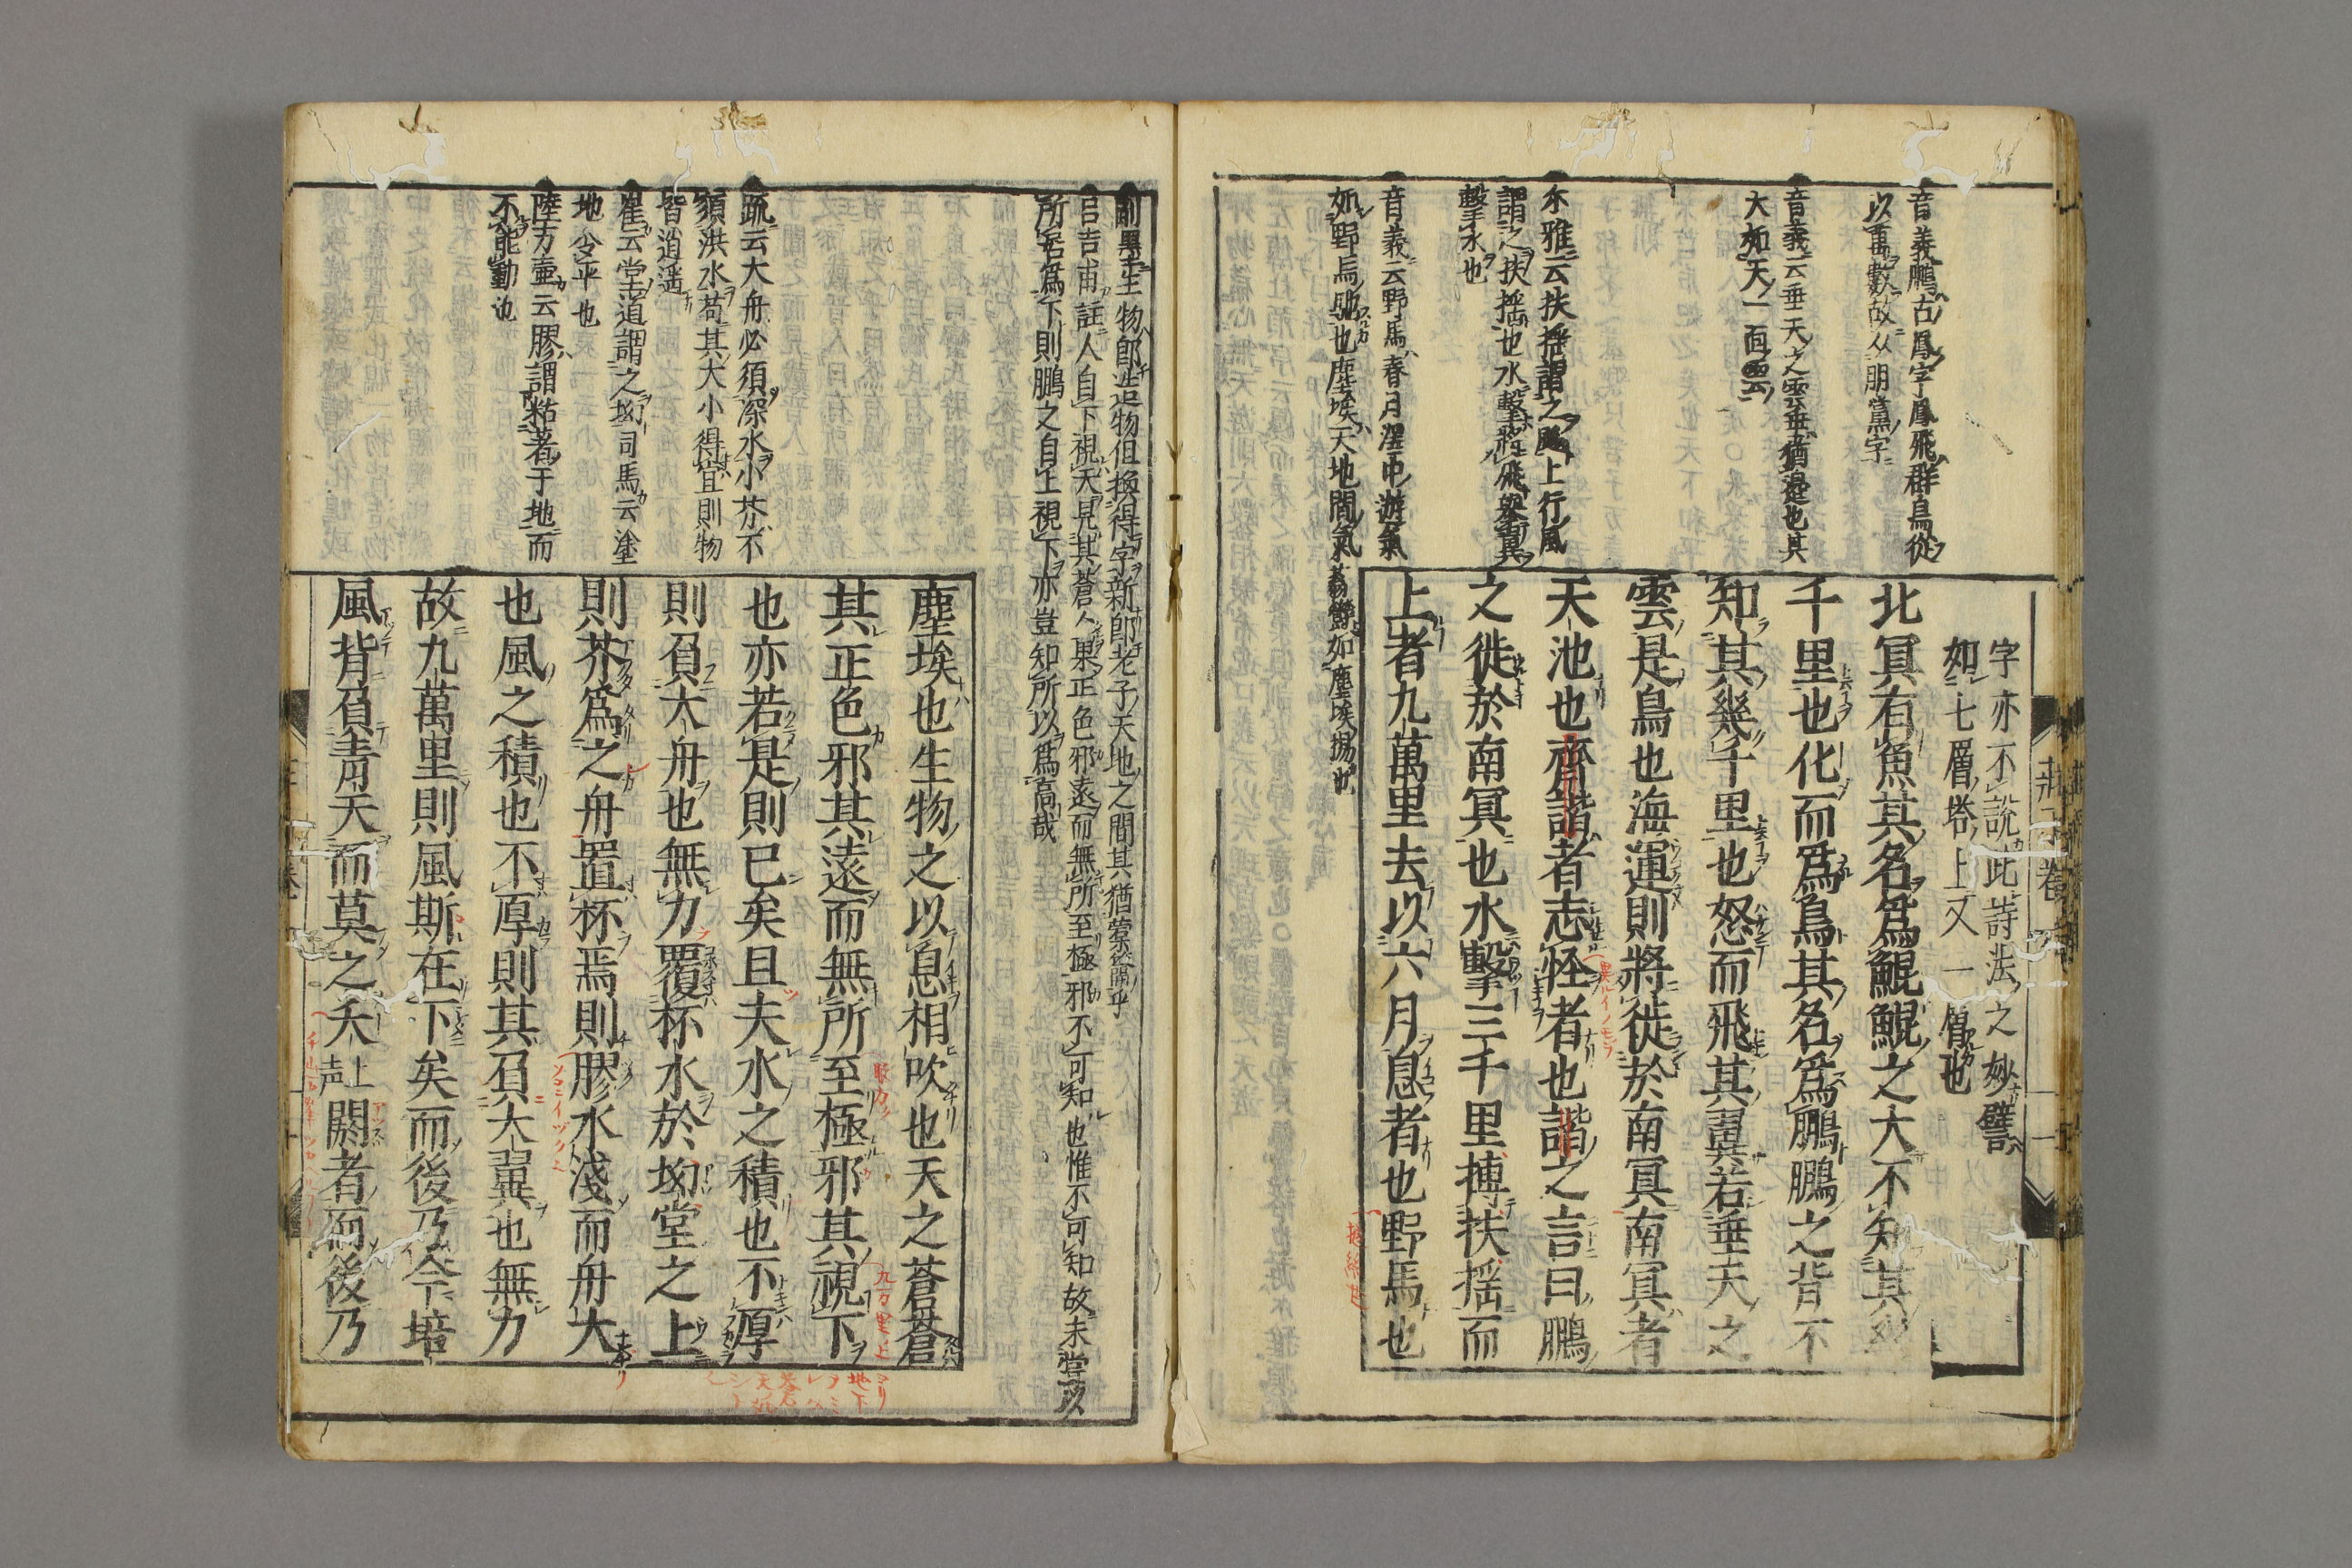 音義鵬古鳳字鳳飛群鳥從
以萬數故以朋黨字
音義云垂天之雲垂猶邊也其
大如天一面雲
尒雅云扶搖謂之飈上行風
謂之扶搖也水擊將飛舉翼
擊水也
音義云野馬春月澤中遊氣
如野馬馳也塵埃天地間氣蓊欝如塵埃揚也
字亦不說此詩法之妙譬
如七層塔上又一層也
北冥有魚其名爲鯤鯤之大不知其幾
千里也化而爲鳥其名爲鵬鵬之背不
知其幾千里也怒而飛其翼若垂天之
雲是鳥也海運則將徙於南冥南冥者
天池也齊諧者志怪者也諧之言曰鵬
之徙於南冥也水擊三千里搏扶搖而
上者九萬里去以六月息者也野馬也
副墨生物即造物但換得字新即老子天地之間其猶橐籥乎
呂吉甫註人自下視天見其蒼人果正色邪遠而無所至極邪不可知也惟不可知故未嘗以
所居爲下則鵬之自上視下亦豈知所以爲高哉
疏云大舟必須深水小芥不
須洪水苟其大小得宜則物
皆逍遥
崔云堂道謂之坳司馬云塗
地令平也
陸方壷云膠謂粘著于地而
不能動也
塵埃也生物之以息相吹也天之蒼蒼
其正色邪其遠而無所至極邪其視下
也亦若是則已矣且夫水之積也不厚
則負大舟也無力覆杯水於坳堂之上
則芥爲之舟置杯焉則膠水淺而舟大
也風之積也不厚則其負大翼也無力
故九萬里則風斯在下矣而後乃今培
風背負青天而莫之夭上声閼者而後乃
莊子卷一